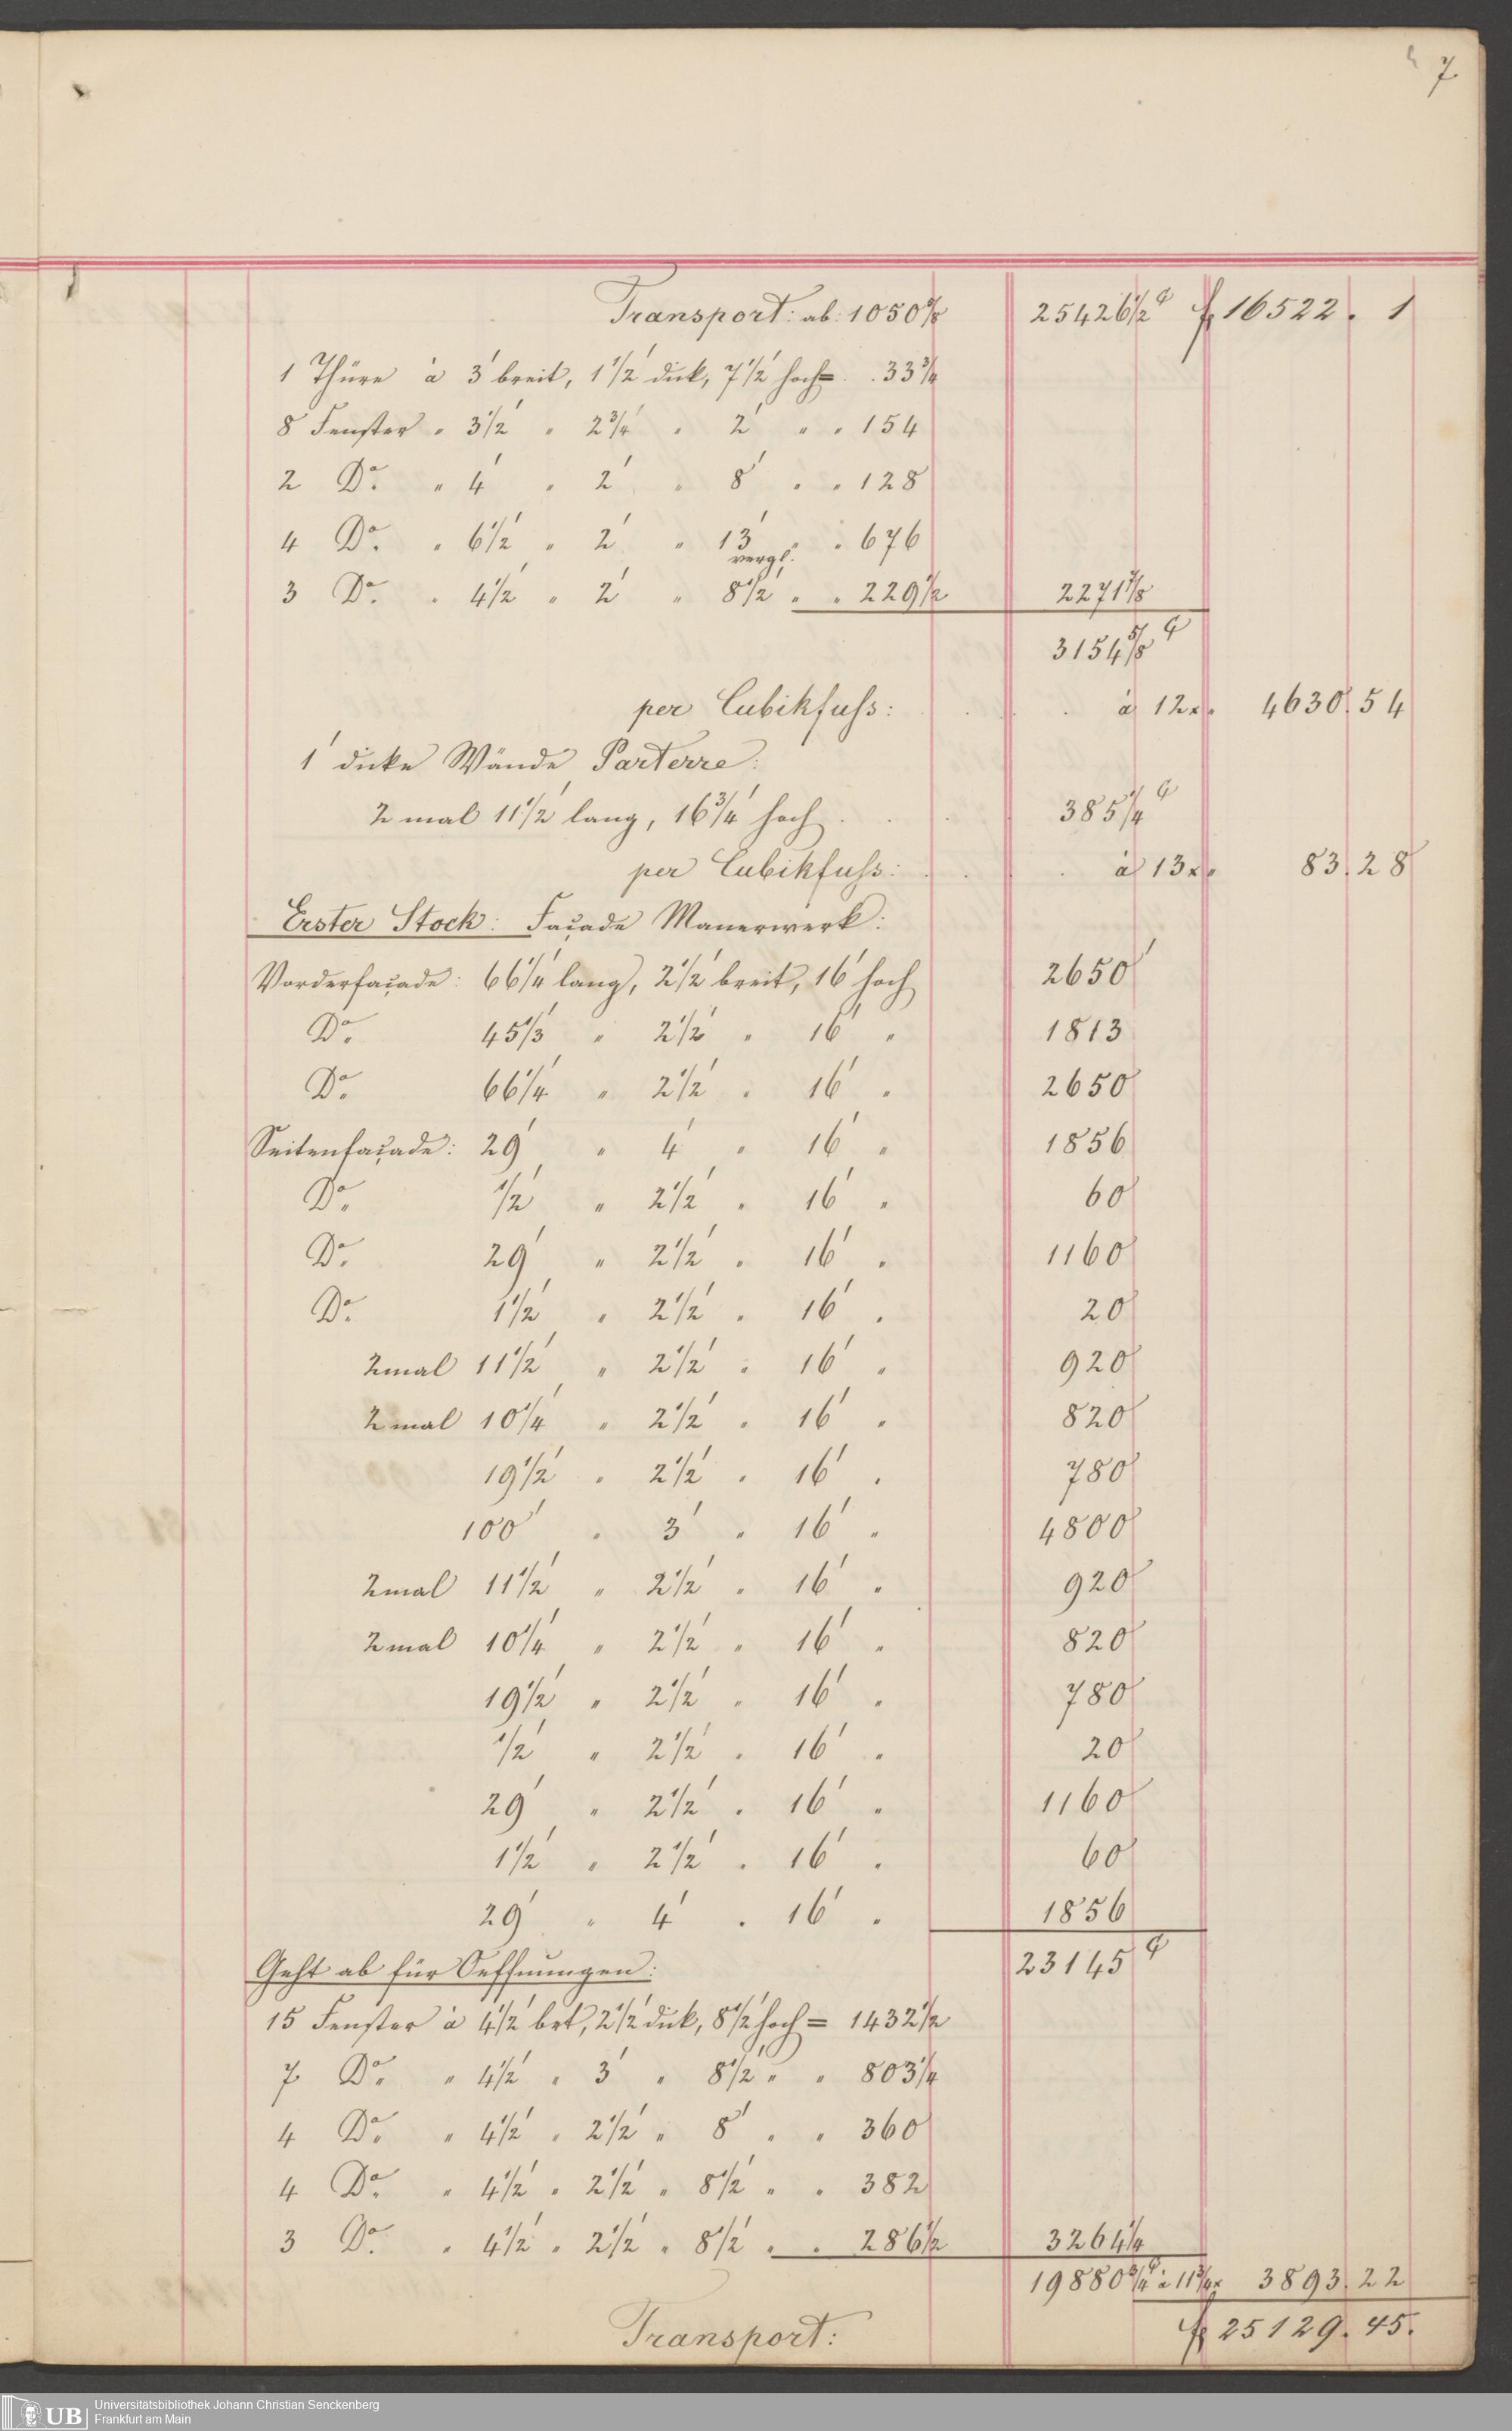 7
Transport: ab: 1050 5/8 25426 1/2 f 16522. 1
1 Thüre à 3' breit, 1 1/2' dick, 7 1/2' hoch = . . 33 3/4
8 Fenster " 3 1/2' " 2 3/4' " 2' " " 154
2 Do. " 4' " 2' " 8' " " 128
4 Do. " 6 1/2' " 2' " 13' " " 676
vergl.
3 Do. " 4 1/2' " 2' " 8 1/2' " " 229 1/2 2271 7/8
3154 5/8
per Cubikfuss: . . . à 12x. 4630. 54
1' dicke Wände Parterre:
2 mal 11 1/2' lang, 16 3/4' hoch . . . 385 1/4
per Cubikfuss: . . . à 13x. 83. 28
Erster Stock: Façade Mauerwerk:
Vorderfaçade: 66 1/4' lang, 2 1/2' breit, 16' hoch 2650'
Do. 45 1/3' " 2 1/2' " 16' " 1813
Do. 66 1/4' " 2 1/2' " 16' " 2650
Seitenfaçade: 29' " 4' " 16' " 1856
Do. 1/2' " 2 1/2' " 16' " 60
Do. 29' " 2 1/2' " 16' " 1160
Do. 1 1/2' " 2 1/2' " 16' " 20
2mal 11 1/2' " 2 1/2' " 16' " 920
2mal 10 1/4' " 2 1/2' " 16' " 820
19 1/2' " 2 1/2' " 16' " 780
100' " 3' " 16' " 4800
2mal 11 1/2' " 2 1/2' " 16' " 920
2mal 10 1/4' " 2 1/2' " 16' " 820
19 1/2' " 2 1/2' " 16' " 780
1/2' " 2 1/2' " 16' " 20
29' " 2 1/2' " 16' " 1160
1 1/2' " 2 1/2' " 16' " 60
29' " 4' " 16' " 1856
23145
Geht ab für Oeffnungen:
15 Fenster à 4 1/2' brt, 2 1/2' dick, 8 1/2' hoch = 1432 1/2
7 Do. " 4 1/2' " 3' " 8 1/2' " " 803 1/4
4 Do. " 4 1/2' " 2 1/2' " 8' " " 360
4 Do. " 4 1/2' " 2 1/2' " 8 1/2' " " 382
3 Do. " 4 1/2' " 2 1/2' " 8 1/2' " " 286 1/2 3264 1/4
19880 3/4 à 11 3/4x 3893. 22
Transport: f 25129. 45.
UB Universitätsbibliothek Johann Christian Senckenberg
Frankfurt am Main